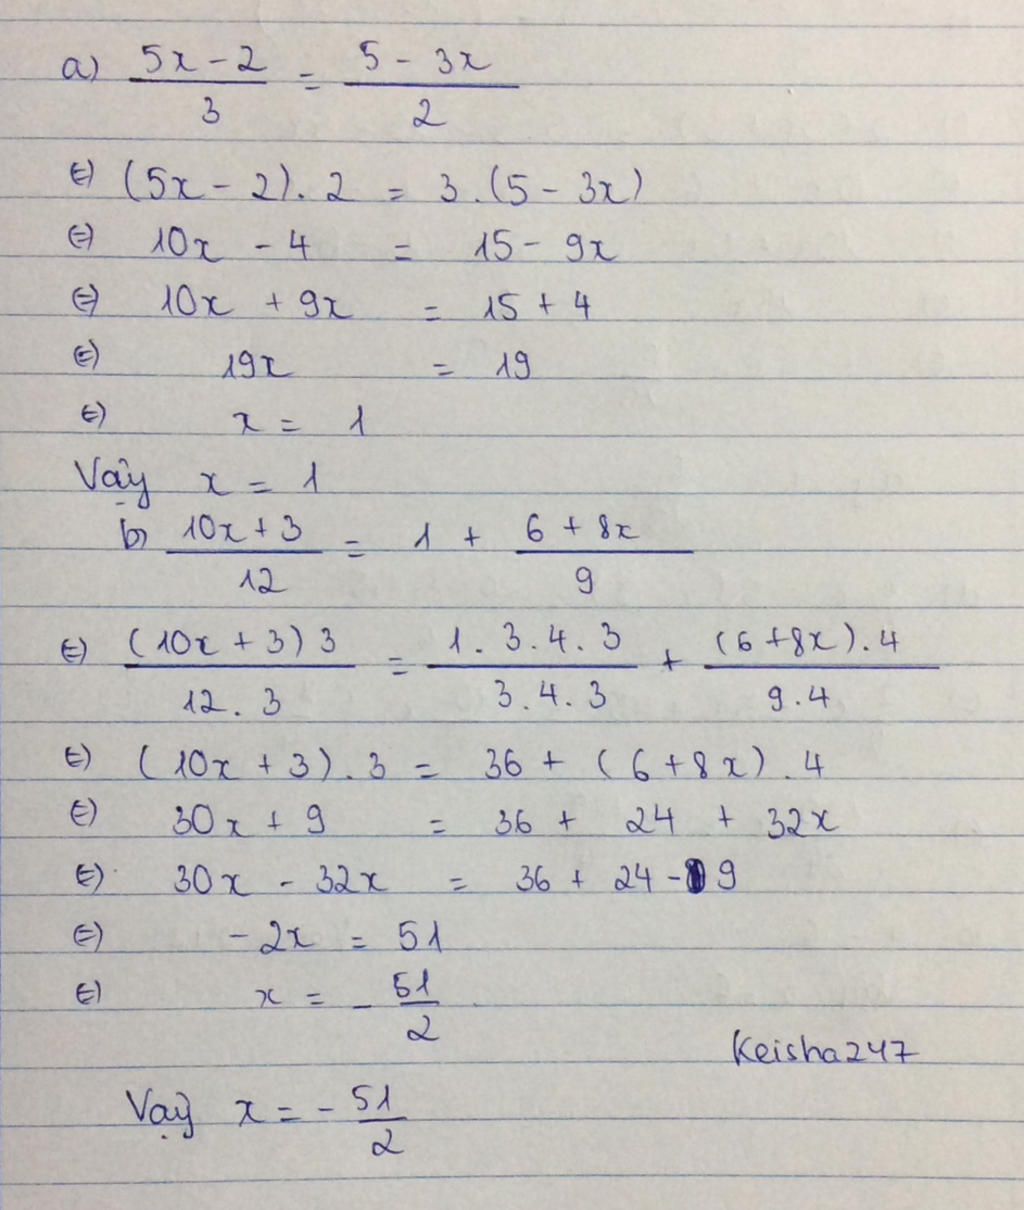 a) \frac{5x - 2}{3} = \frac{5 - 3x}{2}
⇔ (5x - 2). 2 = 3.(5 - 3x)
⇔ 10x - 4 = 15 - 9x
⇔ 10x + 9x = 15 + 4
⇔ 19x = 19
⇔ x = 1
Vậy x = 1
b) \frac{10x + 3}{12} = 1 + \frac{6 + 8x}{9}
⇔ \frac{(10x + 3) 3}{12 . 3} = \frac{1. 3. 4. 3}{3. 4. 3} + \frac{(6 + 8x). 4}{9. 4}
⇔ (10x + 3). 3 = 36 + (6 + 8x). 4
⇔ 30x + 9 = 36 + 24 + 32x
⇔ 30x - 32x = 36 + 24 - 9
⇔ -2x = 51
⇔ x = -\frac{51}{2}
Keisha247
Vậy x = -\frac{51}{2}